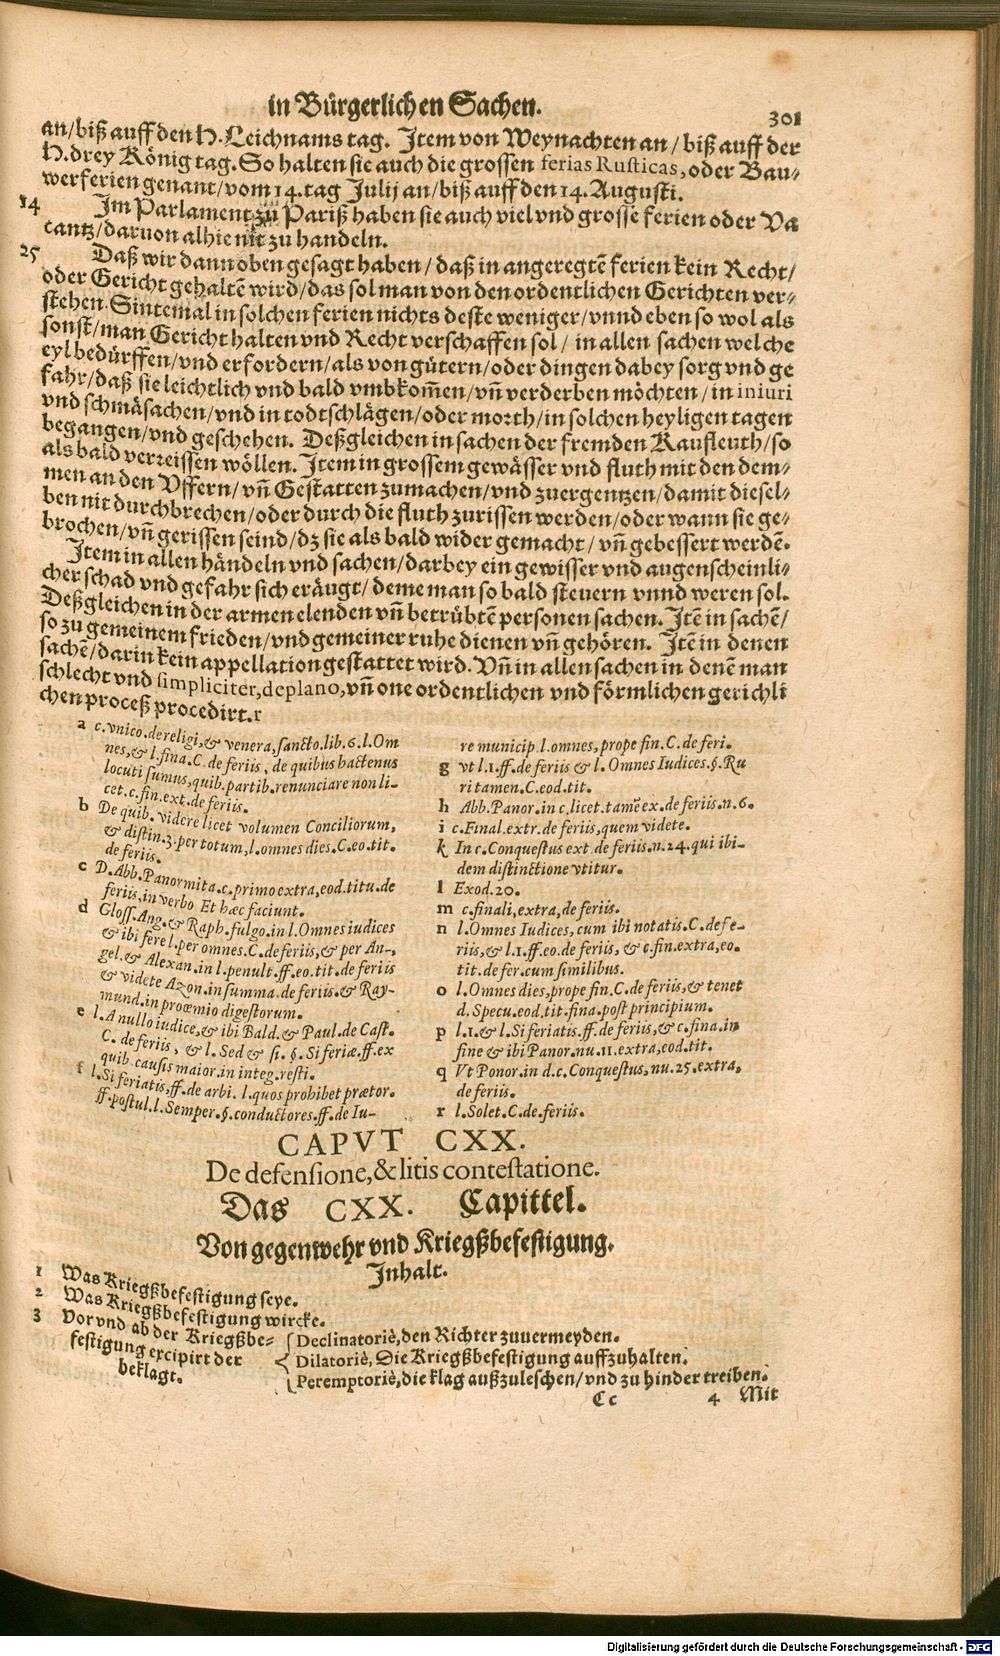 in Bürgerlichen Sachen.
301
an/biß auff den H. Leichnams tag. Item von Weynachten an / biß auff der
H. drey König tag. So halten sie auch die grossen ferias Rusticas, oder Bau-
werferien genant/vom 14. tag Julij an/biß auff den 14. Augusti.
14 Im Parlament zu Pariß haben sie auch viel vnd grosse ferien oder Va
cantz/daruon alhie nit zu handeln.
25 Daß wir dann oben gesagt haben / daß in angeregtē ferien kein Recht/
oder Gericht gehaltē wird/das sol man von den ordentlichen Gerichten ver-
stehen. Sintemal in solchen ferien nichts deste weniger/vnnd eben so wol als
sonst/man Gericht halten vnd Recht verschaffen sol / in allen sachen welche
eyl bedürffen/vnd erfordern/als von gütern/oder dingen dabey sorg vnd ge
fahr/daß sie leichtlich vnd bald vmbkom̄en/vn̄ verderben möchten/in iniuri
vnd schmäsachen/vnd in todtschlägen/oder morth/in solchen heyligen tagen
begangen/vnd geschehen. Deßgleichen in sachen der fremden Kaufleuth/so
als bald verreissen wöllen. Item in grossem gewässer vnd fluth mit den dem-
men an den Vffern/vn̄ Gestatten zumachen/vnd zuergentzen/damit diesel-
ben nit durchbrechen/oder durch die fluth zurissen werden/oder wann sie ge-
brochen/vn̄ gerissen seind/dz sie als bald wider gemacht/vn̄ gebessert werdē.
Item in allen händeln vnd sachen/darbey ein gewisser vnd augenscheinli-
cher schad vnd gefahr sich eräugt/deme man so bald steuern vnnd weren sol.
Deßgleichen in der armen elenden vn̄ betrübtē personen sachen. Itē in sachē/
so zu gemeinem frieden/vnd gemeiner ruhe dienen vn̄ gehören. Itē in denen
sachē/darin kein appellation gestattet wird. Vn̄ in allen sachen in denē man
schlecht vnd simpliciter, de plano, vn̄ one ordentlichen vnd förmlichen gerichli
chen proceß procedirt.r
a c. vnico. de religi, & venera, sancto. lib. 6. l. Om
nes, & l. fina. C. de feriis, de quibus hactenus
locuti sumus, quib. partib. renunciare non li-
cet. c. fin. ext. de feriis.
b De quib. videre licet volumen Conciliorum,
& distin. 3. per totum, l. omnes dies. C. eo. tit.
de feriis.
c D. Abb. Panormita. c. primo extra, eod. titu. de
feriis, in verbo Et hæc faciunt.
d Gloss. Ang. & Raph. fulgo. in l. Omnes iudices
& ibi fere l. per omnes. C. de feriis, & per An-,
gel. & Alexan. in l. penult. ff. eo. tit. de feriis
& videte Azon. in summa. de feriis. & Ray-
mund. in proœmio digestorum.
e l. A nullo iudice, & ibi Bald. & Paul. de Cast.
C. de feriis, & l. Sed & si. §. Si feriæ. ff. ex
quib. causis maior. in integ. resti.
f l. Si feriatis, ff. de arbi. l. quos prohibet prætor.
ff. postul. l. Semper. §. conductores. ff. de Iu-
re municip. l. omnes, prope fin. C. de feri.
g vt l. 1. ff. de feriis & l. Omnes Iudices. §. Ru
ri tamen. C. eod. tit.
h Abb. Panor. in c. licet. tamē ex. de feriis. n. 6.
i c. Final. extr. de feriis, quem videte.
k In c. Conquestus ext. de feriis. n. 24. qui ibi-
dem distinctione vtitur.
l Exod. 20.
m c. finali, extra, de feriis.
n l. Omnes Iudices, cum ibi notatis. C. de fe-
riis, & l. 1. ff. eo. de feriis, & c. fin. extra, eo.
tit. de fer. cum similibus.
o l. Omnes dies, prope fin. C. de feriis, & tenet
d. Specu. eod. tit. fina. post principium.
p l. 1. & l. Si feriatis. ff. de feriis, & c. fina. in
fine & ibi Panor. nu. 11. extra, eod. tit.
q Vt Ponor. in d. c. Conquestus, nu. 25. extra,
de feriis.
r l. Solet. C. de. feriis.
CAPVT CXX.
De defensione, & litis contestatione.
Das CXX. Capittel.
Von gegenwehr vnd Kriegßbefestigung.
Inhalt.
1 Was Kriegßbefestigung seye.
2 Was Kriegßbefestigung wircke.
3 Vor vnd ab der Kriegßbe-
festigung excipirt der
beklagt.
Declinatoriè, den Richter zuuermeyden.
Dilatoriè, Die Kriegßbefestigung auffzuhalten.
Peremptoriè, die klag außzuleschen/vnd zu hinder treiben.
Cc 4 Mit
Digitalisierung gefördert durch die Deutsche Forschungsgemeinschaft - DFG